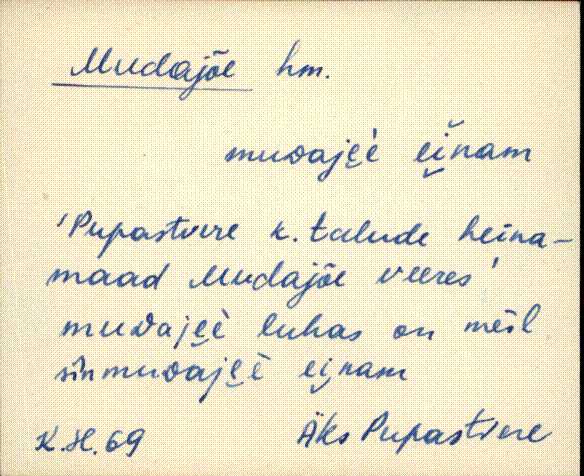 Mudajõe hm.
muᴅaje̮è ei̮nam
'Pupastvere k. talude heina-
maad Mudajõe veeres'
muᴅaje̮è luhas on mēil
sīn muᴅaje̮è ei̮nam
K.H. 69 Äks Pupastvere